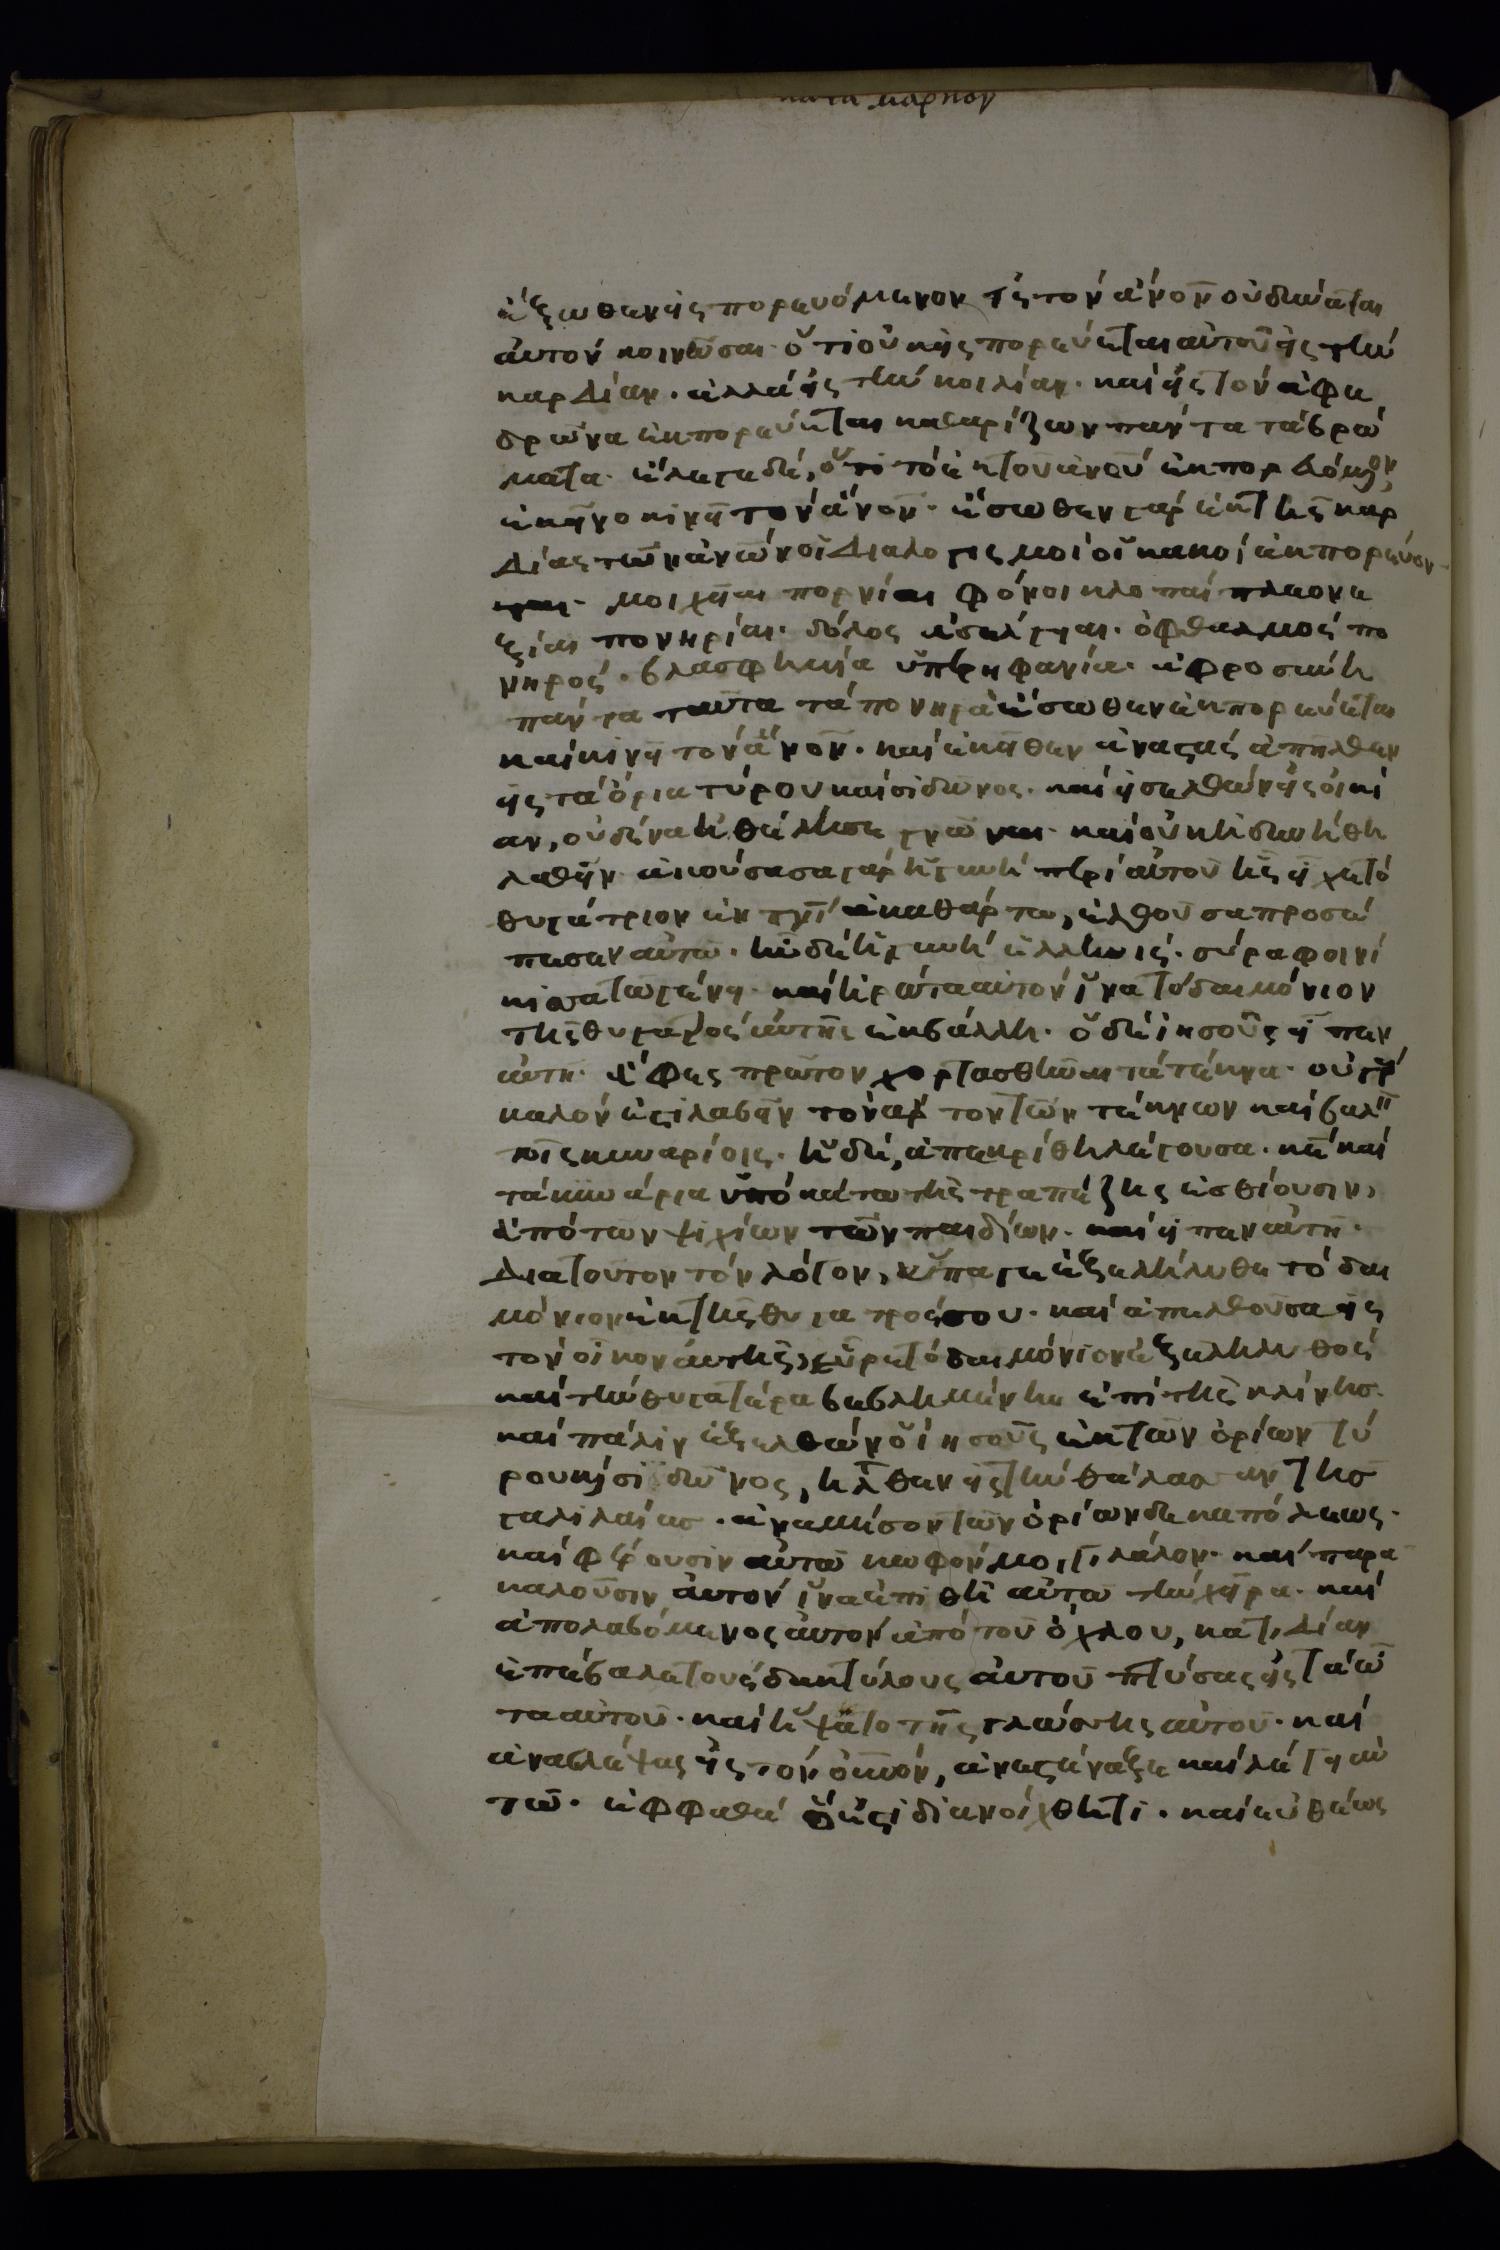 κατα μαρκον
ἔξωθεν εἰσπορευόμενον εἰς τὸν ἄνον οὐ δύναται
ἀυτὸν κοινῶσαι· ὅτι οὐκ εἰσπορεύεται αὐτοῦ εἰς τὴν
καρδίαν. ἀλλ' εἰς τὴν κοιλίαν· καὶ εἰς τὸν ἀφε
δρῶνα ἐκπορεύεται καθαρίζων πάντα τὰ βρώ
ματα. ἔλεγε δὲ, ὅτι τὸ ἐκ τοῦ ἀνοῦ ἐκπορευόμενον
ἐκεῖνο κινεῖ τὸν ἄνον. ἔσωθεν γὰρ ἐκ τῆς καρ
δίας τῶν ἀνων οἱ διαλογισμοὶ οἱ κακοὶ ἐκπορεύον
ται· μοιχεῖαι πορνίαι φόνοι κλοπαὶ πλεονε
ξίαι πονηρίαι. δόλος ἀσέλγειαι. ὀφθαλμὸς πο
νηρός. βλασφημία ὑπερηφανία. ἀφροσύνη
πάντα ταῦτα τὰ πονηρὰ ἔσωθεν ἐκπορεύεται
καὶ κινεῖ τὸν ἄνον. καὶ ἐκεῖθεν ἀναστὰς ἀπῆλθεν
εἰς τὰ ὅρια τύρου καὶ σιδῶνος. καὶ εἰσελθὼν εἰς οἰκί
αν, οὐδένα ἠθέλησε γνῶναι· καὶ οὐκ ἠδυνήθη
λαθεῖν. ἀκούσασα γὰρ ἡ γυνὴ περὶ αὐτοῦ ἧς εἶχε τὸ
θυγάτριον ἐν πνι ἀκαθάρτω, ἐλθοῦσα προσέ
πεσεν αὐτῶ. ἦν δὲ ἡ γυνὴ ἑλληνὶς. σύρα φοινί
κισσα τῶ γένει· καὶ ἠρώτα αὐτὸν ἵνα τὸ δαιμόνιον
τῆς θυγατρὸς ἀυτῆς ἐκβάλλη. ὁ δὲ ἰησοῦς εἶπεν
ἀυτῆ. ἄφες πρῶτον χορτασθῆναι τὰ τέκνα. οὐ γὰρ
καλὸν ἐστὶ λαβεῖν τὸν ἄρτον τῶν τέκνων καὶ βαλεῖν
τοῖς κυναρίοις. ἡ δὲ, ἀπεκρίθη λέγουσα. κε καὶ
τὰ κυνάρια ὑποκάτω τῆς τραπέζης ἐσθίουσιν,
ἀπὸ τῶν ψιχίων τῶν παιδίων. καὶ εἶπεν αὐτῆ.
διὰ τοῦτον τὸν λόγον, ὕπαγε ἐξελήλυθε τὸ δαι
μόνιον ἐκ τῆς θυγατρός σου. καὶ ἀπελθοῦσα εἰς
τὸν οἶκον ἀυτῆς, εὗρε τὸ δαιμόνιον ἐξεληλυθὸς
καὶ τὴν θυγατέρα βεβλημένην ἐπὶ τῆς κλίνης.
καὶ πάλιν ἐξελθὼν ὁ ἰησοῦς ἐκ τῶν ὁρίων τύ
ρου κὶ σιδῶνος, ἦλθεν εἰς τὴν θάλασσαν τῆς
γαλιλαίας. ἀναμέσον τῶν ὁρίων δεκαπόλεως.
καὶ φέρουσιν αὐτῶ κωφὸν μογγιλάλον· καὶ παρα
καλοῦσιν ἀυτὸν ἵνα ἐπιθῆ αὐτῶ τὴν χεῖρα. καὶ
ἀπολαβόμενος ἀυτὸν ἀπὸ τοῦ ὄχλου, κατιδίαν
ἐπέβαλε τοὺς δακτύλους ἀυτοῦ πτύσας εἰς τὰ ὦ
τα αὐτοῦ. καὶ ἥψατο τῆς γλώσσης αὐτοῦ. καὶ
ἀναβλέψας εἰς τὸν οὐνον, ἀνεστέναξε καὶ λέγει αὐ
τῶ. ἐφφαθά ὅ ἐστι διανοίχθητι. καὶ εὐθέως